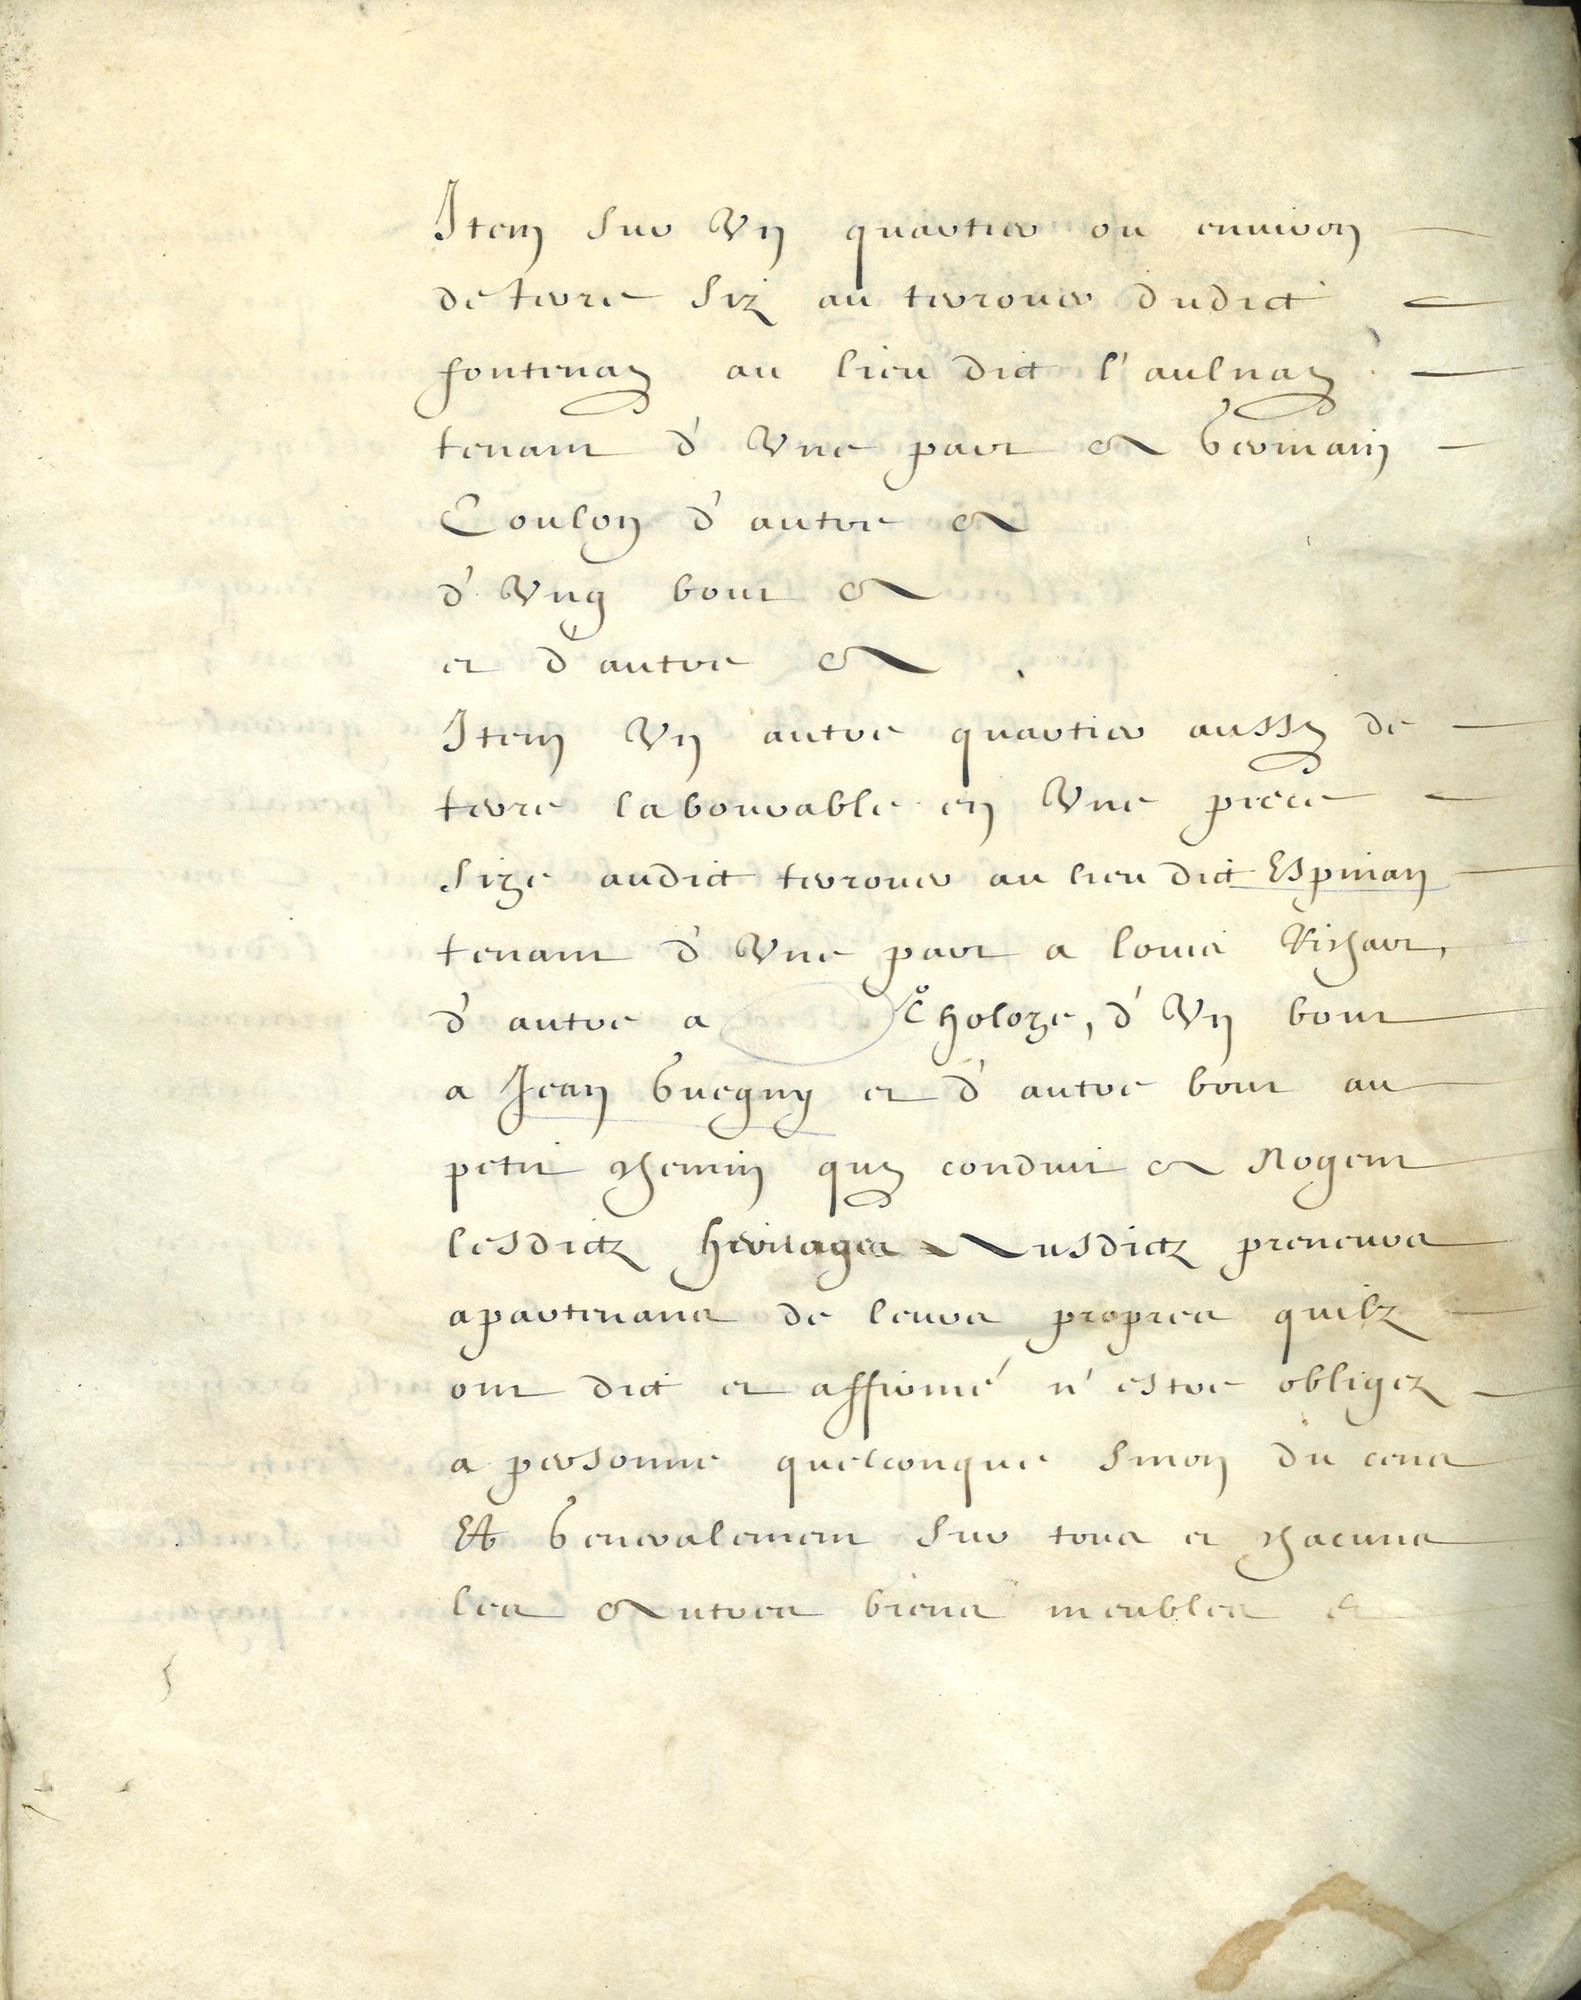 Item sur Un quartier ou environ
de terre siz au terrouer dudict
fontenay au lieu dict l'aulnay
tenant d' Une part A Germain
Coulon d'autre A
d' Ung bout A
et d'autre A
Item Un autre quartier aussy de
terre labourable en Une piece
size audict terrouer au lieu dict Espinay
tenant d' Une part a louis Richart,
d' autre a Tholoze, d' Un bout
a Jean Guegny et d' autre bout au
petit chemin quy conduit A Nogent
lesdictz heritages Ausdictz preneurs
apartenans de leurs propres quilz
ont dict et affirmé n' estre obligez
a personne quelconque sinon du cens
Et Generalement sur tous et chacuns
les Autres biens meubles et